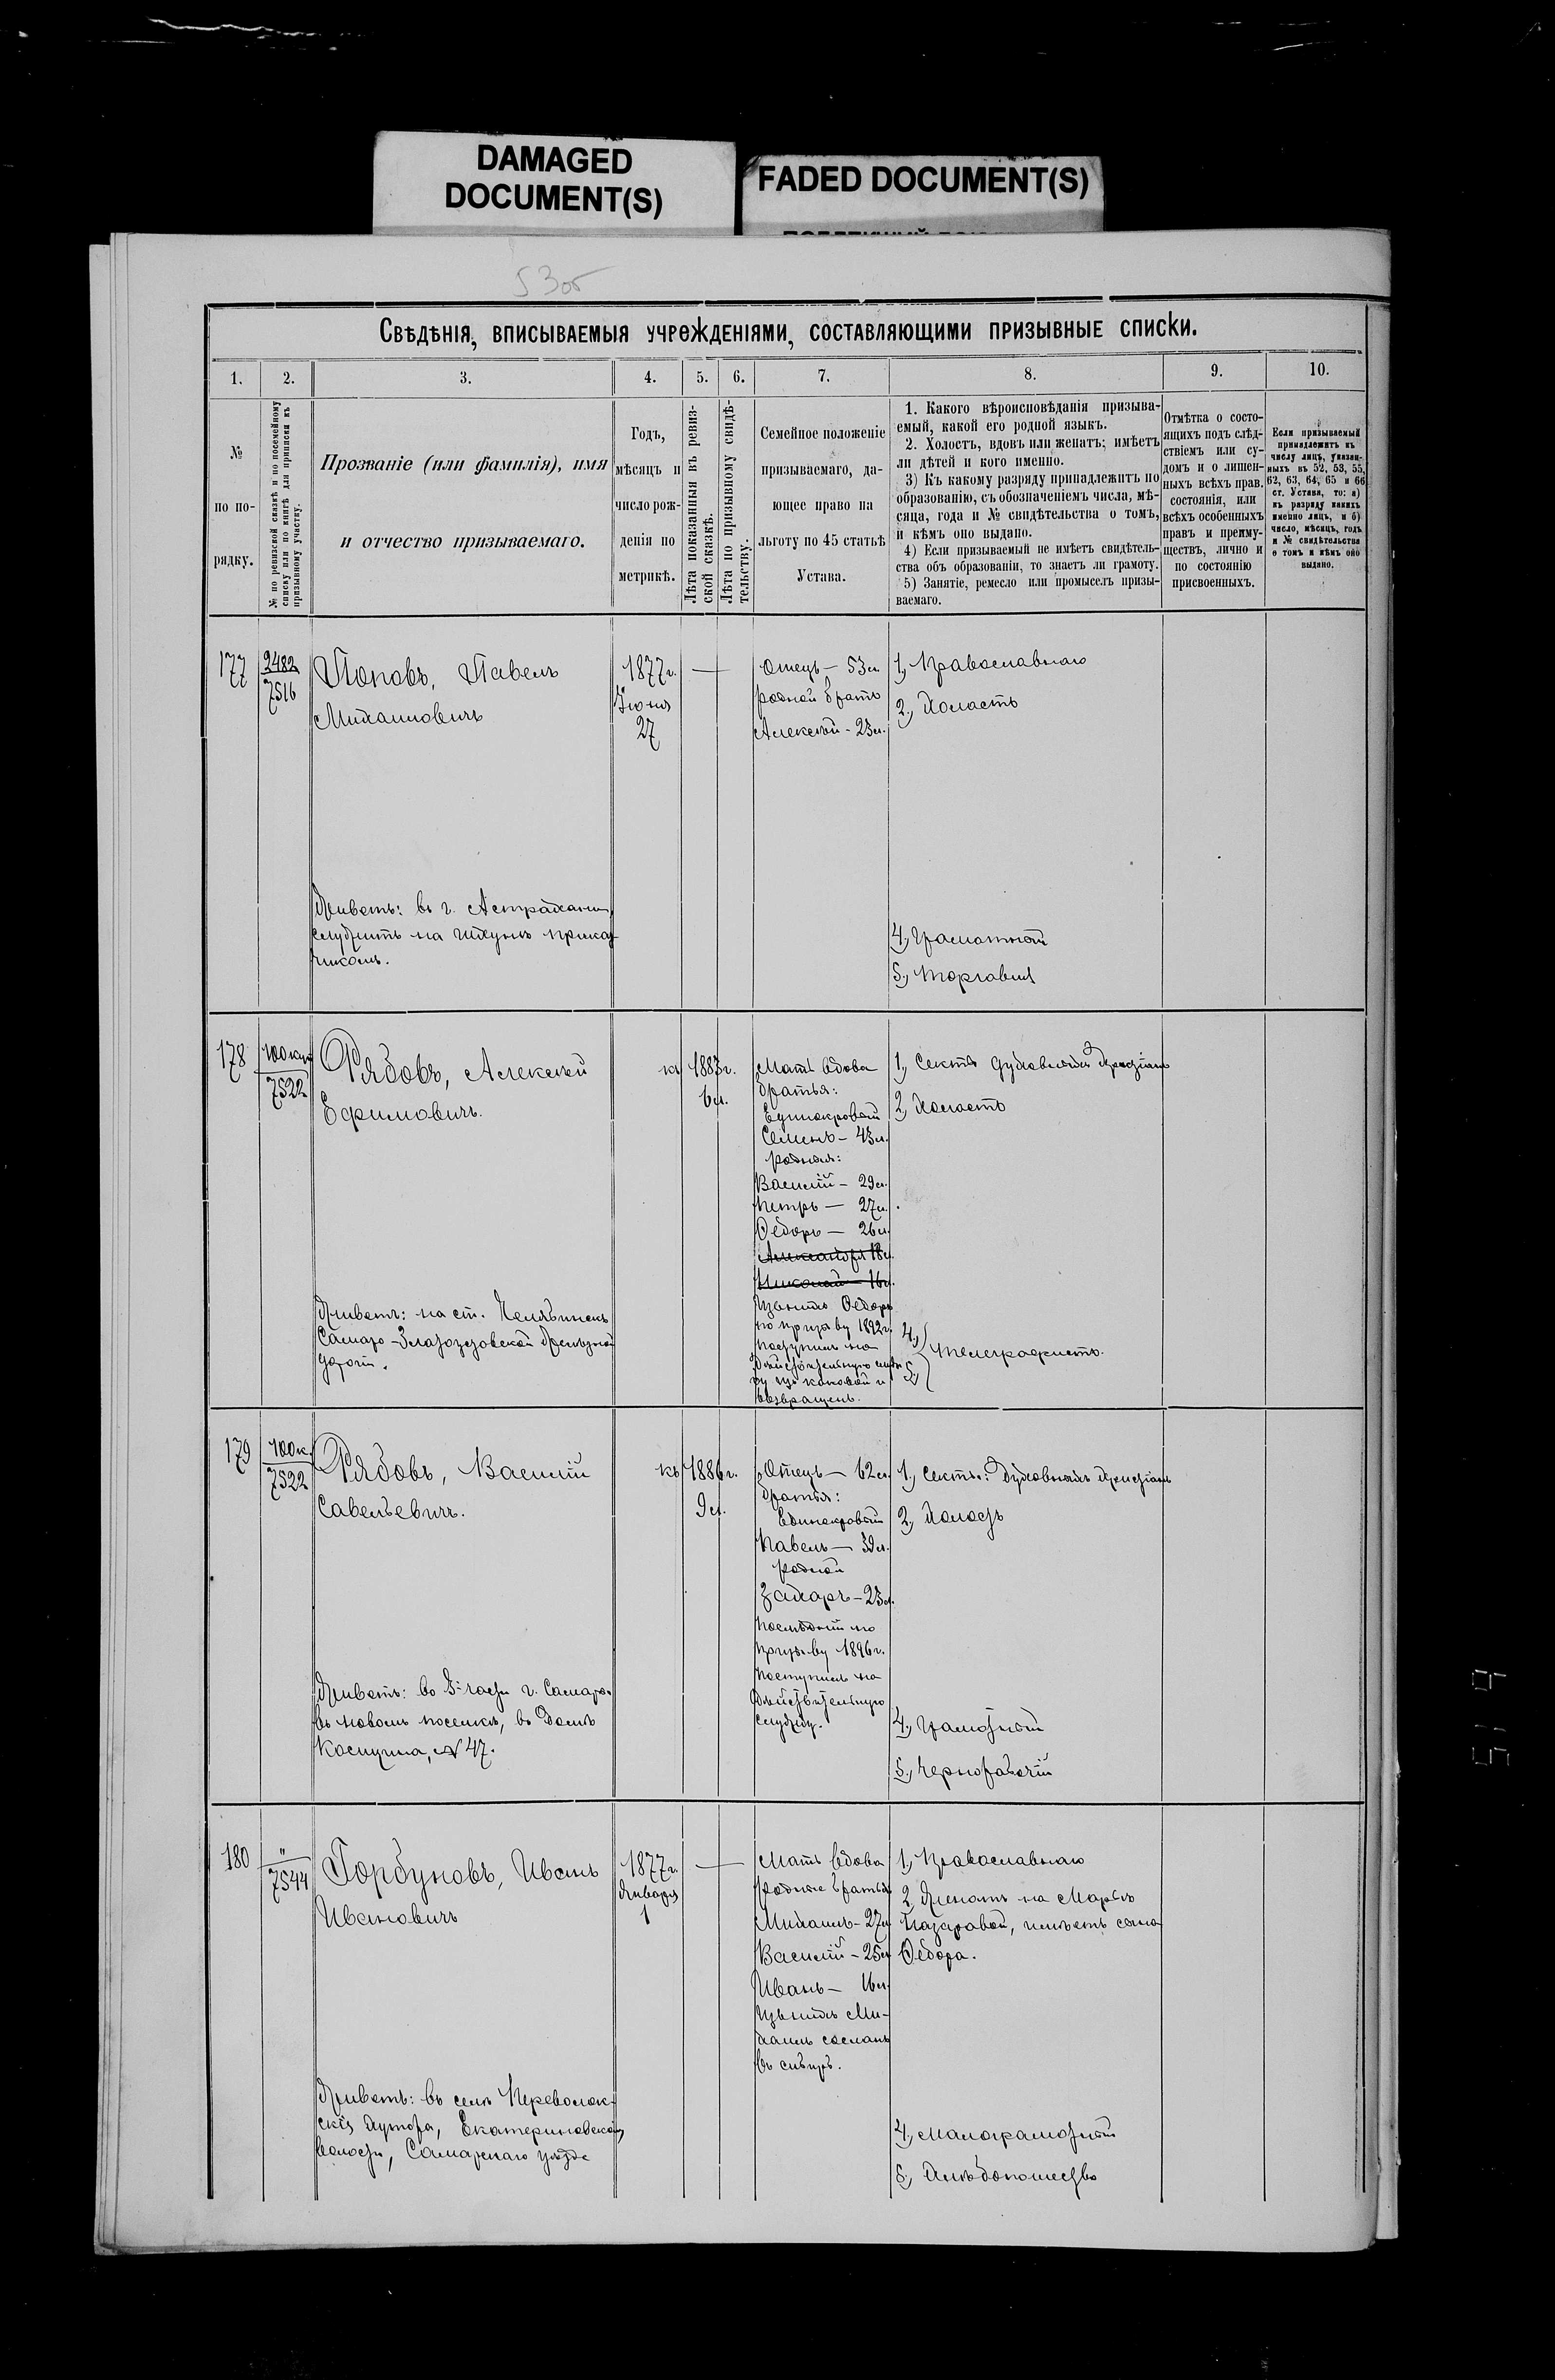 DAMAGED
DOCUMENT(S)
FADED DOCUMENT(S)
Свѣдѣнія, вписываемыя учрежденіями, составляющими призывные списки.
1. 2. 3. 4. 5. 6. 7. 8. 9. 10.
№
по по-
рядку.
№ по ревизской сказкѣ и по посемейному
списку или по книгѣ для приписки къ
призывному участку.
Прозваніе (или фамилія), имя
и отчество призываемаго.
Годъ,
мѣсяцъ и
число рож-
денія по
метрикѣ.
Лѣта показанныя въ ревиз-
ской сказкѣ.
Лѣта по призывному свидѣ-
тельству.
Семейное положеніе
призываемаго, да-
ющее право на
льготу по 45 статьѣ
Устава.
1. Какого вѣроисповѣданія призыва-
емый, какой его родной языкъ.
2. Холостъ, вдовъ или женатъ; имѣетъ
ли дѣтей и кого именно.
3) Къ какому разряду принадлежитъ по
образованію, съ обозначеніемъ числа, мѣ-
сяца, года и № свидѣтельства о томъ,
и кѣмъ оно выдано.
4) Если призываемый не имѣетъ свидѣтель-
ства объ образованіи, то знаетъ ли грамоту.
5) Занятіе, ремесло или промыселъ призы-
ваемаго.
Отмѣтка о состо-
ящихъ подъ слѣд-
ствіемъ или су-
домъ и о лишен-
ныхъ всѣхъ прав.
состоянія, или
всѣхъ особенныхъ
правъ и преиму-
ществъ, лично и
по состоянію
присвоенныхъ.
Если призываемый
принадлежитъ къ
числу лицъ, указан-
ныхъ въ 52, 53, 55,
62, 63, 64, 65 и 66
ст. Устава, то: а)
къ разряду какихъ
именно лицъ, и б)
число, мѣсяцъ, годъ
и № свидѣтельства
о томъ и кѣмъ оно
выдано.
177
2482
7516
Поповъ, Павелъ
Михаиловичъ
Живетъ: въ г. Астрахани,
служитъ на шкунѣ прикащ
чикомъ.
1877 г.
Іюня
27
Отецъ - 53 л.
родной братъ
Алексѣй - 23 л.
1, Православнаго
2, Холостъ
4, Грамотный
5, Торговля
178
7522
Рябовъ, Алексѣй
Ефимовичъ.
Живетъ: на ст. Челябинскъ
Самаро-Златоустовской Желѣзной
дороги.
къ 1883 г.
6 л.
Мать вдова
братья:
Единокровный
Семенъ - 43 л.
родныя:
Василій - 29 л.
Петръ - 27 л.
Ѳедоръ - 26 л.
Александръ 18 л.
Николай - 16 л.
Изъ нихъ Ѳедоръ
по призыву 1892 г.
поступилъ на
дѣйствительную служ
бу изъ каковой и
возвращенъ.
1, Секты духовныхъ христіанъ
2, Холостъ
4,
5,
Телеграфистъ.
179
100 к.
7522
Рябовъ, Василій
Савельевичъ.
Живетъ: во 3й части г. Самары
въ новомъ поселкѣ, въ домѣ
№ 47.
къ 1886 г.
9 л.
Отецъ - 62 л.
братья:
Единокровный
Павелъ - 39 л.
родной
Захаръ - 23 л.
Послѣдній по
призыву 1896 г.
поступилъ на
дѣйствительную
службу.
1, Секты: Духовныхъ христіанъ
2, Холостъ
4, Грамотный
5, Чернорабочій
180
"
7544
Горбуновъ, Иванъ
Ивановичъ
Живетъ: въ селѣ Переволок-
скія хутора, Екатериновской
волости, Самарскаго уѣзда
1877 г.
Января
1
Мать вдова
родные братья
Михаилъ - 27 л.
Василій - 25 л.
Иванъ - 16 л.
Изъ нихъ Ми-
хаилъ сосланъ
въ сибирь.
1, Православнаго
2, Женатъ на Марьѣ
Назаровой, имѣетъ сына
Ѳедора.
4, Малограмотный
5, Хлѣбопашество
519